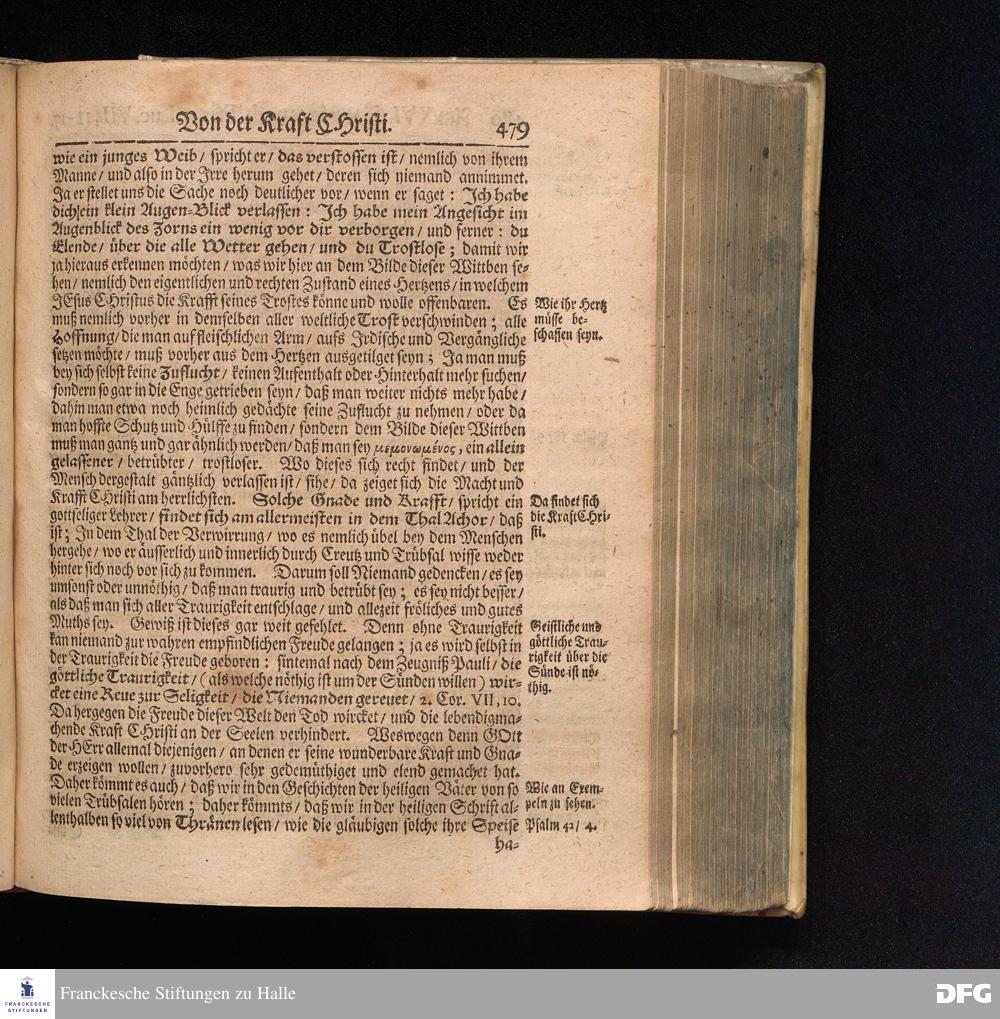 Von der Kraft CHristi. 479
wie ein junges Weib / spricht er / das verstossen ist / nemlich von ihrem
Manne / und also in der Irre herum gehet / deren sich niemand annimmet.
Ja er stellet uns die Sache noch deutlicher vor / wenn er saget : Ich habe
dich ein klein Augen-Blick verlassen : Ich habe mein Angesicht im
Augenblick des Zorns ein wenig vor dir verborgen / und ferner : du
Elende / über die alle Wetter gehen / und du Trostlose ; damit wir
ja hieraus erkennen möchten / was wir hier an dem Bilde dieser Wittben se-
hen / nemlich den eigentlichen und rechten Zustand eines Hertzens / in welchem
JEsus CHristus die Krafft seines Trostes könne und wolle offenbaren. Es
muß nemlich vorher in demselben aller weltliche Trost verschwinden ; alle
Hoffnung / die man auf fleischlichen Arm / aufs Irdische und Vergängliche
setzen möchte / muß vorher aus dem Hertzen ausgetilget seyn ; Ja man muß
bey sich selbst keine Zuflucht / keinen Aufenthalt oder Hinterhalt mehr suchen /
sondern so gar in die Enge getrieben seyn / daß man weiter nichts mehr habe /
dahin man etwa noch heimlich gedächte seine Zuflucht zu nehmen / oder da
man hoffte Schutz und Hülffe zu finden / sondern dem Bilde dieser Wittben
muß man gantz und gar ähnlich werden / daß man sey μεμονωμένος, ein allein
gelassener / betrübter / trostloser. Wo dieses sich recht findet / und der
Mensch dergestalt gäntzlich verlassen ist / sihe / da zeiget sich die Macht und
Krafft CHristi am herrlichsten. Solche Gnade und Krafft / spricht ein
gottseliger Lehrer / findet sich am allermeisten in dem Thal Achor / daß
ist ; In dem Thal der Verwirrung / wo es nemlich übel bey dem Menschen
hergehe / wo er äusserlich und innerlich durch Creutz und Trübsal wisse weder
hinter sich noch vor sich zu kommen. Darum soll Niemand gedencken / es sey
umsonst oder unnöthig / daß man traurig und betrübt sey ; es sey nicht besser /
als daß man sich aller Traurigkeit entschlage / und allezeit fröliches und gutes
Muths sey. Gewiß ist dieses gar weit gefehlet. Denn ohne Traurigkeit
kan niemand zur wahren empfindlichen Freude gelangen ; ja es wird selbst in
der Traurigkeit die Freude geboren : sintemal nach dem Zeugniß Pauli / die
göttliche Traurigkeit / ( als welche nöthig ist um der Sünden willen ) wir-
cket eine Reue zur Seligkeit / die Niemanden gereuet / 2. Cor. VII, 10.
Da hergegen die Freude dieser Welt den Tod wircket / und die lebendigma-
chende Kraft CHristi an der Seelen verhindert. Weswegen denn GOtt
der HErr allemal diejenigen / an denen er seine wunderbare Kraft und Gna-
de erzeigen wollen / zuvorhero sehr gedemüthiget und elend gemachet hat.
Daher kömmt es auch / daß wir in den Geschichten der heiligen Väter von so
vielen Trübsalen hören ; daher kömmts / daß wir in der heiligen Schrift al-
lenthalben so viel von Thränen lesen / wie die gläubigen solche ihre Speise
ha-
Wie ihr Hertz
müsse be-
schaffen seyn.
Da findet sich
die Kraft CHri-
sti.
Geistliche und
göttliche Trau-
rigkeit über die
Sünde ist nö-
thig.
Wie an Exem-
peln zu sehen.
Psalm 42 / 4.
FRANCKESCHE
STIFTUNGEN
Franckesche Stiftungen zu Halle
DFG